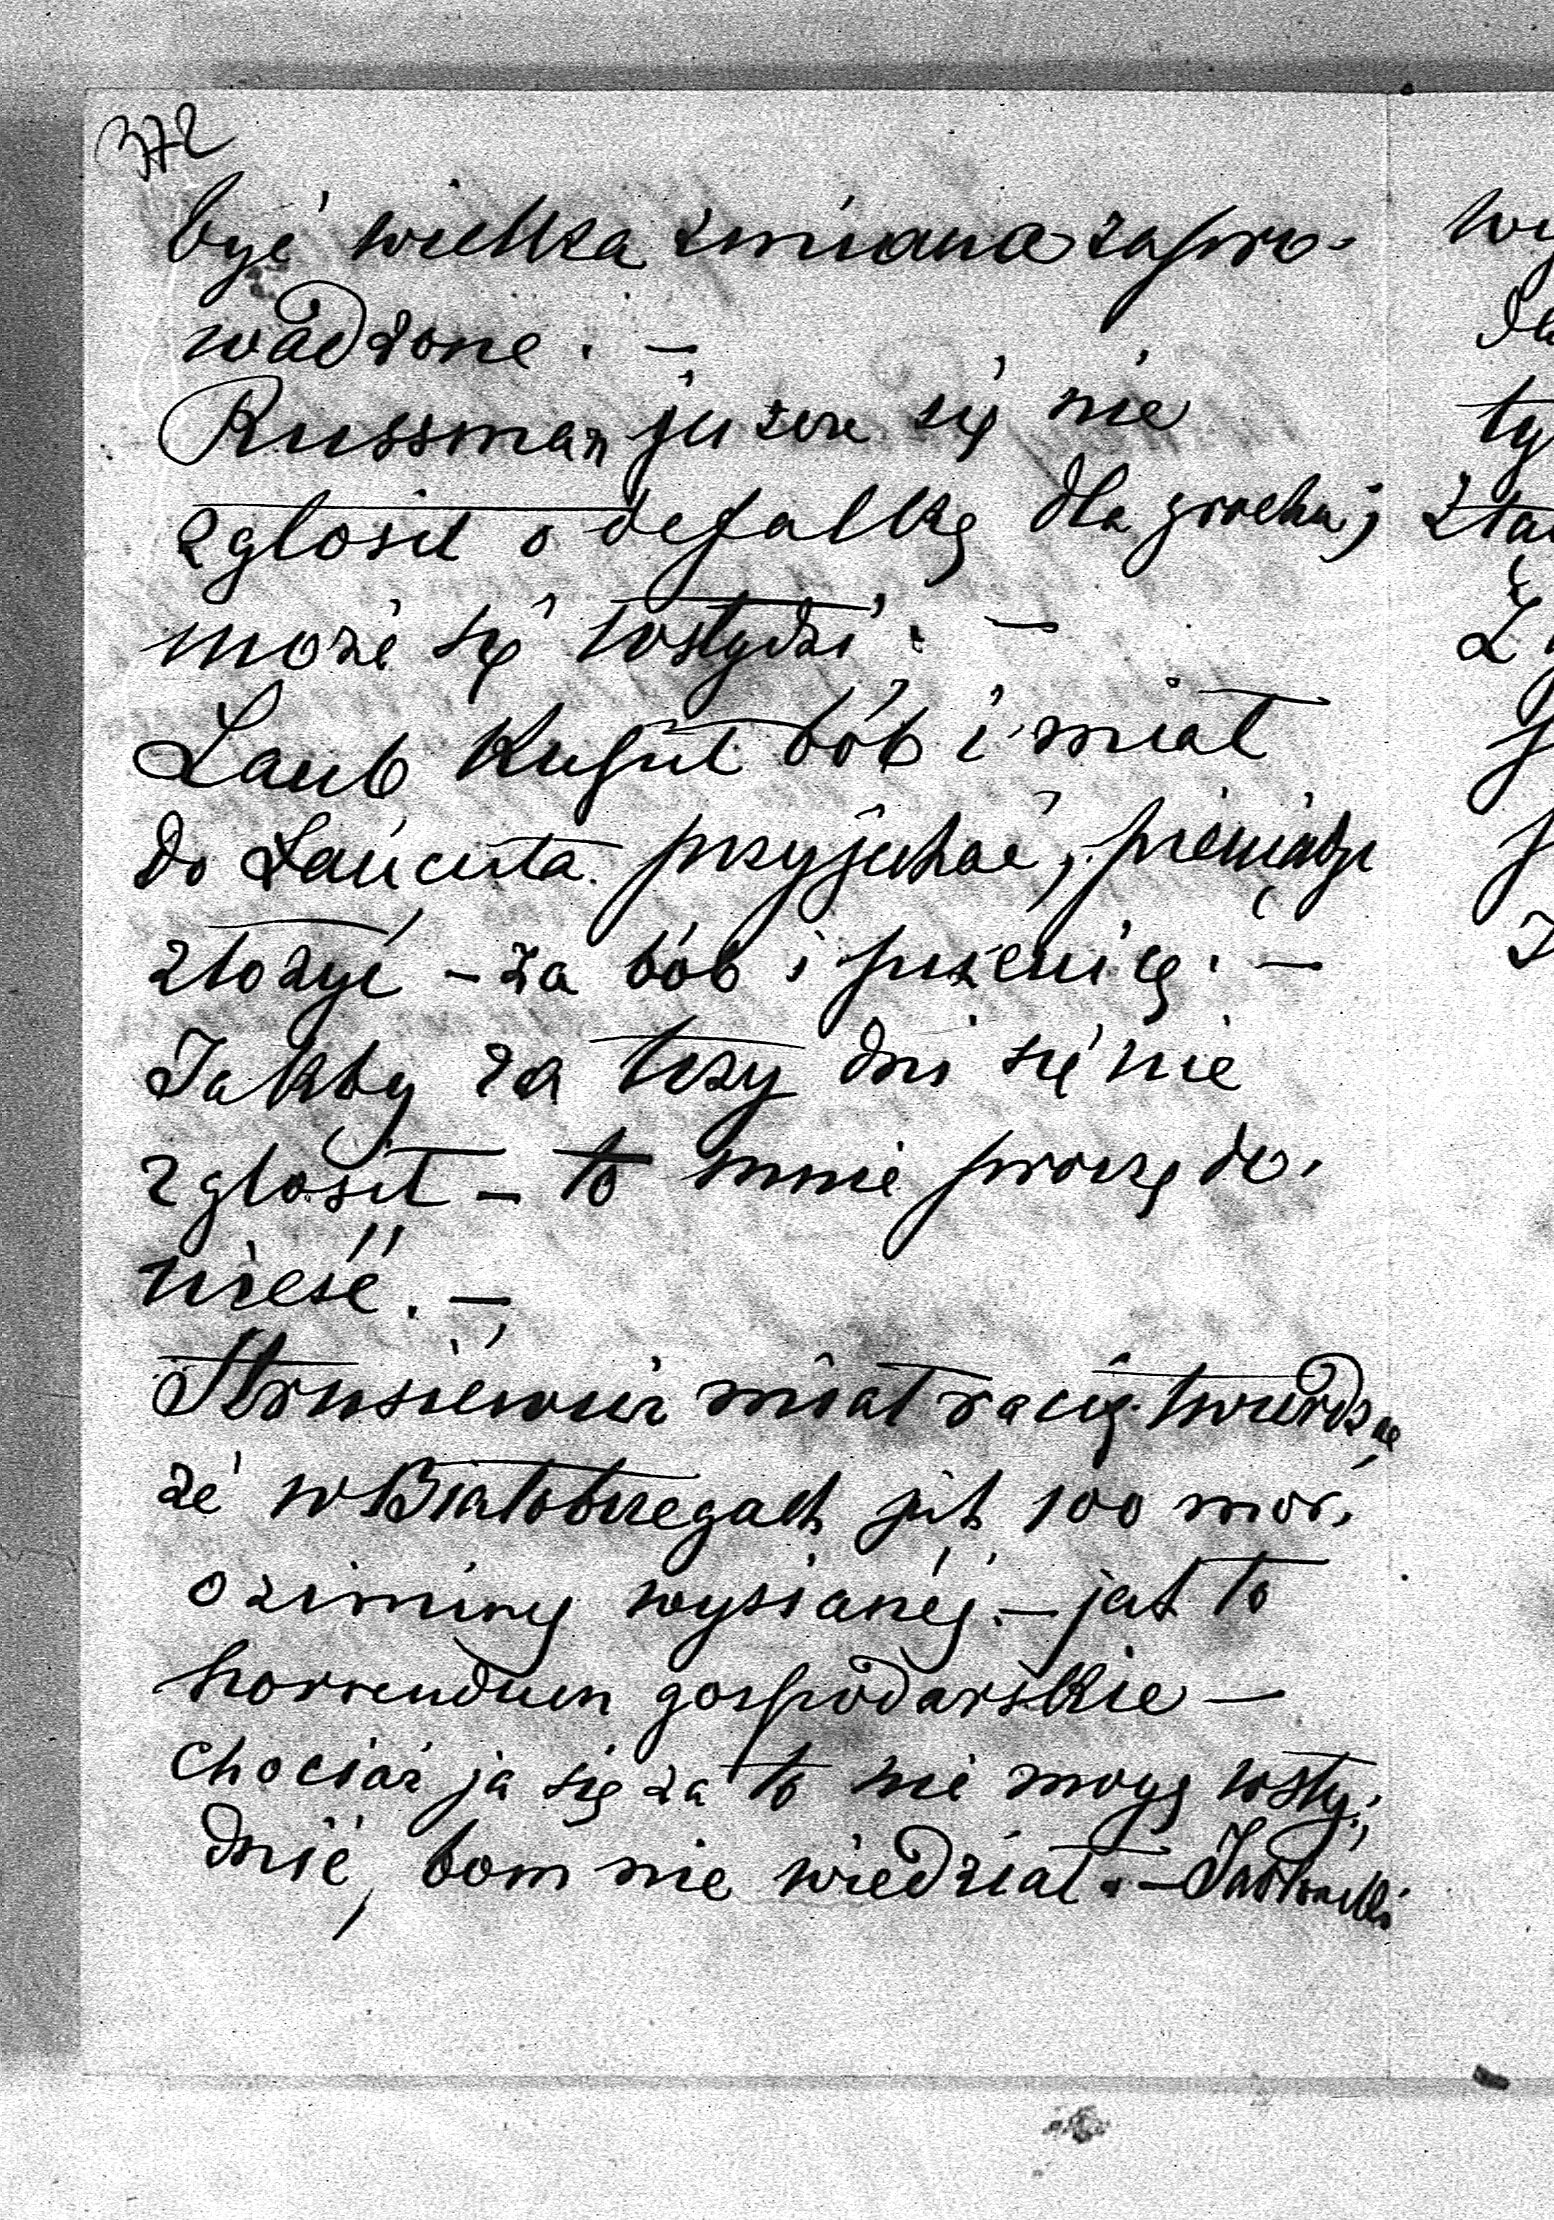 372
być wielka zmiana zapro-
wadzone. —
Russman jeszcze się nie
zgłosił o defalkę dla grochu;
może się wstydzi. —
Laub kupił bób i miał
do Łańcuta przyjechać, pieniądze
złożyć – za bób i pszenicę. —
Jakby za trzy dni się nie
zgłosił – to mnie proszę do-
nieść. —
Strusiewicz miał racię twierdząc
że w Białobrzegach jest 100 mor.
oziminy wysianéj. – jest to
horrendum gospodarskie —
chociaż ja się za to nie mogę wsty-
dzić, bom nie wiedział. –